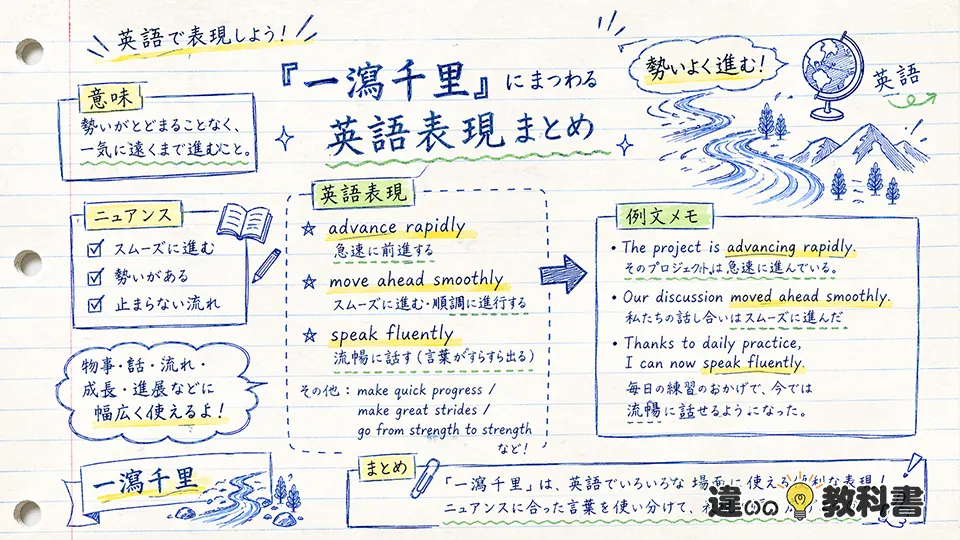 英語で表現しよう！
『一瀉千里』にまつわる
英語表現まとめ
勢いよく進む！
英語
意味
勢いがとどまることなく、
一気に遠くまで進むこと。
ニュアンス
スムーズに進む
勢いがある
止まらない流れ
物事・話・流れ・
成長・進展などに
幅広く使えるよ！
一瀉千里
英語表現
advance rapidly
急速に前進する
move ahead smoothly
スムーズに進む・順調に進行する
speak fluently
流暢に話す（言葉がすらすら出る）
その他：make quick progress /
make great strides /
go from strength to strength
など！
例文メモ
・The project is advancing rapidly.
そのプロジェクトは急速に進んでいる。
・Our discussion moved ahead smoothly.
私たちの話し合いはスムーズに進んだ
・Thanks to daily practice,
I can now speak fluently.
毎日の練習のおかげで、今では
流暢に話せるようになった。
まとめ
「一瀉千里」は、英語でいろいろな場面に使える便利な表現！
ニュアンスに合った言葉を使い分けて、
違いの教科書